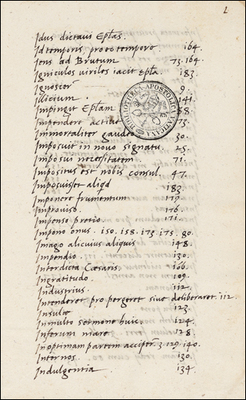 2
Idus dicavi Eptas.
Id temporis pro eo tempore. 164.
Iens ad Brutum 73. 164.
Igniculos viriles iacit Epta. 183.
Ignoscer 9.
Illicium. 141.
Impingit Eptam 58.
Impendere 55.
Immortaliter gaudeo 30.
Imposuit in novo signatu. 25.
Imposui necessitatem 71.
Impositus est nobis consul. 47.
Imposuisset aliqd 183.
Imponere frumentum 179.
Improviso. 176.
Impenso pretio 171.
Impono onus. 150. 158. 173. 175. 80.
Imago alicuius aliquis 148.
Impendio. 130.
Interdicta Caesaris. 106.
Ingratitudo. 109.
Industrius. 112.
Intenderet. pro pergeret sive deliberaret. 112.
Insulto 123.
In multo sermone huic 124.
Inferum mare 128.
In optimam partem accipio. 3. 129. 140.
Internos. 130.
Indulgentia 134.